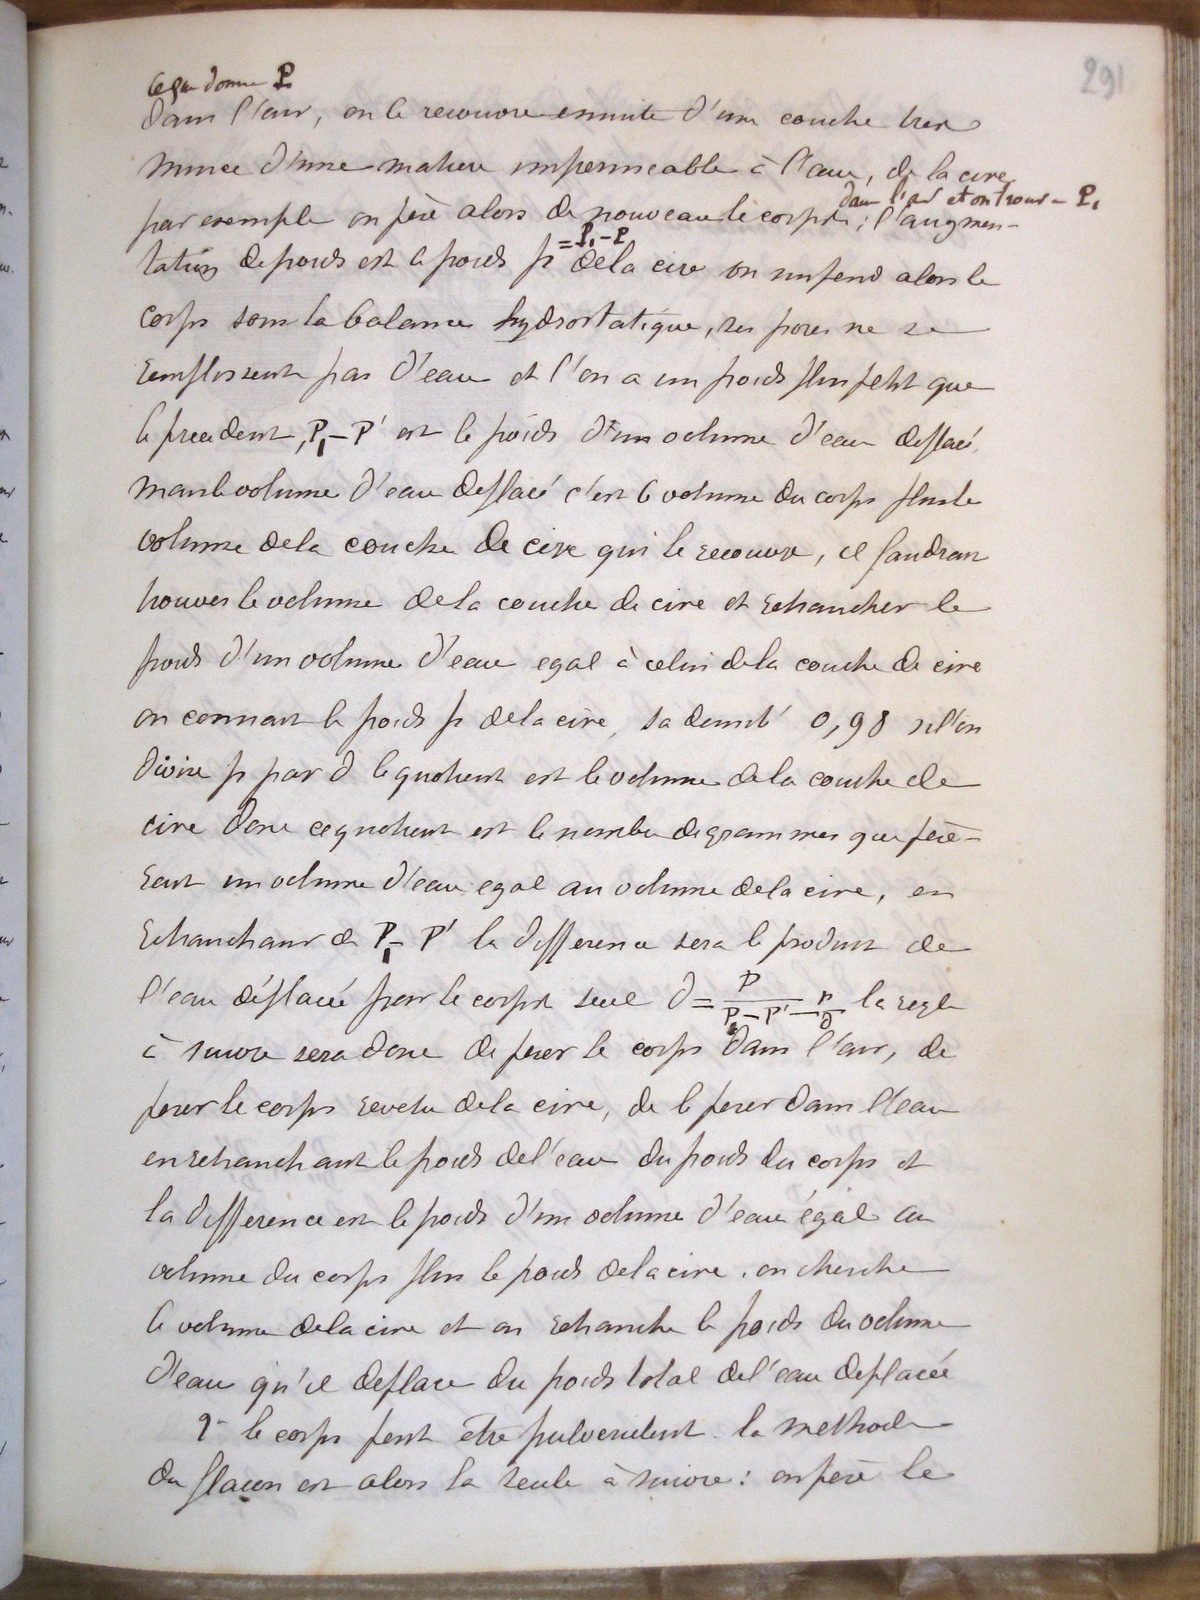 291
ce qui donne P
dans l'air, on le recouvre ensuite d'une couche tres
mince d'une matiere impermeable à l'eau, de la cire
dans l'air et on trouve P₁
par exemple on pèse alors de nouveau le corps ; l'augmen-
= P₁ - P
tation de poids est le poids p de la cire on suspend alors le
corps sous la balance hydrostatique, ses pores ne se
remplissent pas d'eau et l'on a un poids plus petit que
le precedent, P₁ - P' est le poids d'un volume d'eau deplacé
mais le volume d'eau deplacé c'est le volume du corps plus le
volume de la couche de cire qui le recouvre, il faudrait
trouver le volume de la couche de cire et retrancher le
poids d'un volume d'eau egal à celui de la couche de cire
on connait le poids p de la cire, sa densité 0,98 si l'on
divise p par d le quotient est le volume de la couche de
cire donc ce quotient est le nombre de grammes que pese-
rait un volume d'eau egal au volume de la cire, en
retranchant de P₁ - P' la difference sera le produit de
l'eau déplacée par le corps seul d = P / (P₁ - P' - p/d) la regle
à suivre sera donc de peser le corps dans l'air, de
peser le corps revetu de la cire, de le peser dans l'eau
en retranchant le poids de l'eau du poids du corps et
la difference est le poids d'un volume d'eau égal au
volume du corps plus le poids de la cire. on cherche
le volume de la cire et on retranche le poids du volume
d'eau qu'il deplace du poids total de l'eau deplacée
le corps peut être pulverulent. la methode
du flacon est alors la seule à suivre : on pèse le